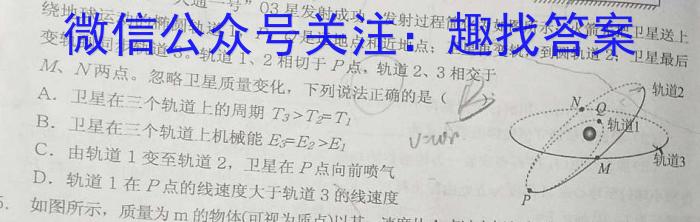 天通一号”03星发射成功，发射过程简
星送上
绕地球运
微信公众号关注：趣找答案
变轨
轨道1、2相切于P点，轨道2、3相交于
M、N两点。忽略卫星质量变化，下列说法正确的是（
B
A．卫星在三个轨道上的周期 T3>T2=T1
B．卫星在三个轨道上机械能 E3=E2>E1
v=wr
C．由轨道1变至轨道2，卫星在P点向前喷气
D．轨道1在P点的线速度大于轨道3的线速度
如图所示，质量为m的物体(可视为质点)以某
轨道2
N
Q
轨道1
轨道3
M
P